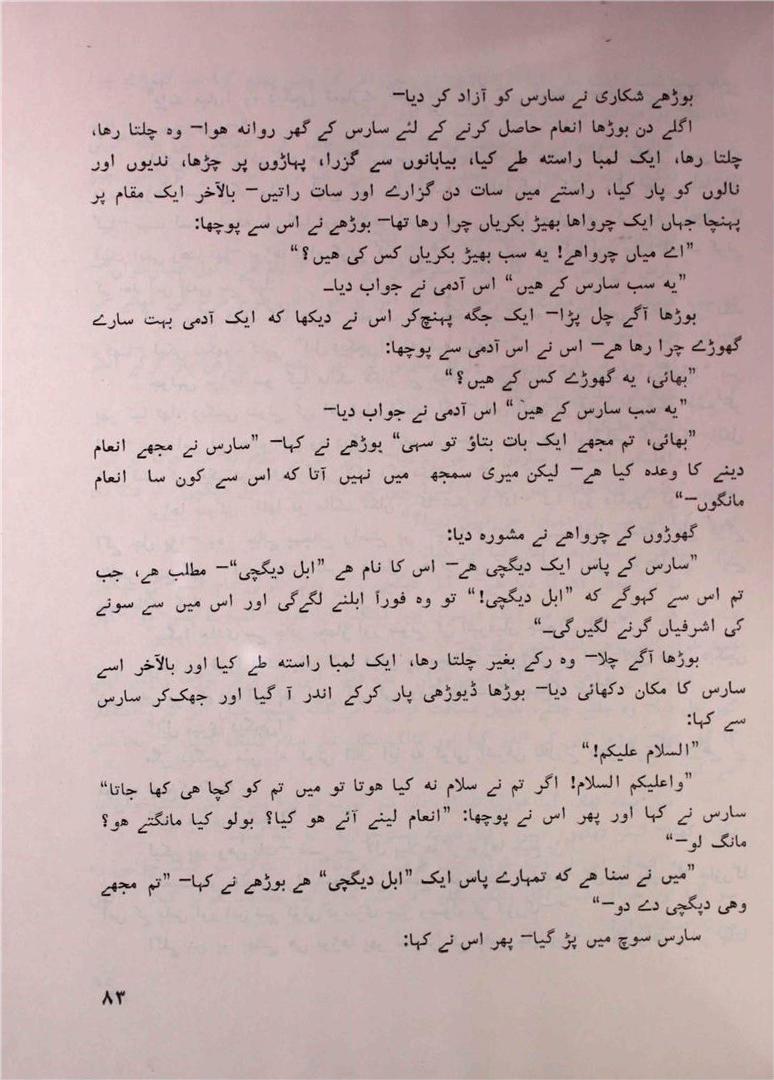 بوڑھے شکاری نے سارس کو آزاد کر دیا—
اگلے دن بوڑھا انعام حاصل کرنے کے لئے سارس کے گھر روانہ ھوا— وہ چلتا رھا،
چلتا رھا، ایک لمبا راستہ طے کیا، بیابانوں سے گزرا، پہاڑوں پر چڑھا، ندیوں اور
نالوں کو پار کیا، راستے میں سات دن گزارے اور سات راتیں— بالآخر ایک مقام پر
پہنچا جہاں ایک چرواھا بھیڑ بکریاں چرا رھا تھا— بوڑھے نے اس سے پوچھا:
”اے میاں چرواھے! یہ سب بھیڑ بکریاں کس کی ھیں؟“
”یہ سب سارس کے ھیں“ اس آدمی نے جواب دیا—
بوڑھا آگے چل پڑا— ایک جگہ پہنچ‌کر اس نے دیکھا کہ ایک آدمی بہت سارے
گھوڑے چرا رھا ھے— اس نے اس آدمی سے پوچھا:
”بھائی، یہ گھوڑے کس کے ھیں؟“
”یہ سب سارس کے ھیں“ اس آدمی نے جواب دیا—
”بھائی، تم مجھے ایک بات بتاؤ تو سہی“ بوڑھے نے کہا— ”سارس نے مجھے انعام
دینے کا وعدہ کیا ھے— لیکن میری سمجھ میں نہیں آتا کہ اس سے کون سا انعام
مانگوں—“
گھوڑوں کے چرواھے نے مشورہ دیا:
”سارس کے پاس ایک دیگچی ھے— اس کا نام ھے ”ابل دیگچی“— مطلب ھے، جب
تم اس سے کہوگے کہ ”ابل دیگچی!“ تو وہ فوراً ابلنے لگے‌گی اور اس میں سے سونے
کی اشرفیاں گرنے لگیں‌گی—“
بوڑھا آگے چلا— وہ رکے بغیر چلتا رھا، ایک لمبا راستہ طے کیا اور بالآخر اسے
سارس کا مکان دکھائی دیا— بوڑھا ڈیوڑھی پار کرکے اندر آ گیا اور جھک‌کر سارس
سے کہا:
”السلام علیکم!“
”واعلیکم السلام! اگر تم نے سلام نہ کیا ھوتا تو میں تم کو کچا ھی کھا جاتا“
سارس نے کہا اور پھر اس نے پوچھا: ”انعام لینے آئے ھو کیا؟ بولو کیا مانگتے ھو؟
مانگ لو—“
”میں نے سنا ھے کہ تمہارے پاس ایک ”ابل دیگچی“ ھے بوڑھے نے کہا— ”تم مجھے
وھی دیگچی دے دو—“
سارس سوچ میں پڑ گیا— پھر اس نے کہا:
۸۳